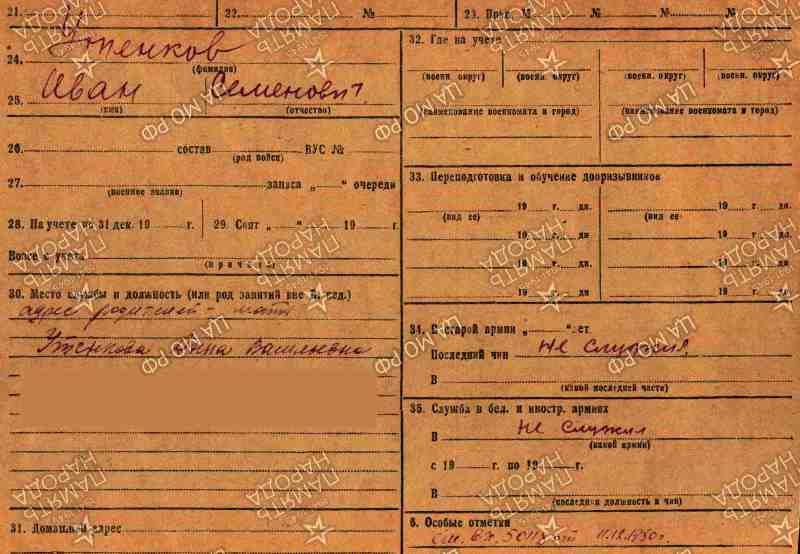 21. 22. № 23. Прот. М № № №
24. Утенков
(фамилия)
25. Иван Семенович
(имя) (отчество)
26. состав ВУС №
(род войск)
27. запаса „ “ очереди
(военное звание)
28. На учете по 31 дек. 19 г. 29. Сент „ “ 19 г.
с учета
(причина)
30. Место службы и должность (или род занятий вне вн. вед.)
адрес родителей - мать
Утенкова Васильевна
31. Домашний адрес
32. Где на учете
(военн. округ) (военн. округ) (военн. округ) (военн. округ)
(наименование военкомата и город) (наименование военкомата и город)
33. Переподготовка и обучение допризывников
19 г. дн. 19 г. дн.
(вид ее) (вид ее)
19 г. дн 19 г. дн.
19 г. дн. 19 г. дн.
19 г. дн 19 г. дн.
34. В старой армии „ “ лет
Последний чин не служил
В
(какой последней части)
35. Служба в бел. и иностр. армиях
В не служил
(какой армии)
с 19 г. по 19 г.
В
(последняя должность и чин)
6. Особые отметки
см. вх. 1950г.
ПАМЯТЬ НАРОДА
ЦАМО РФ